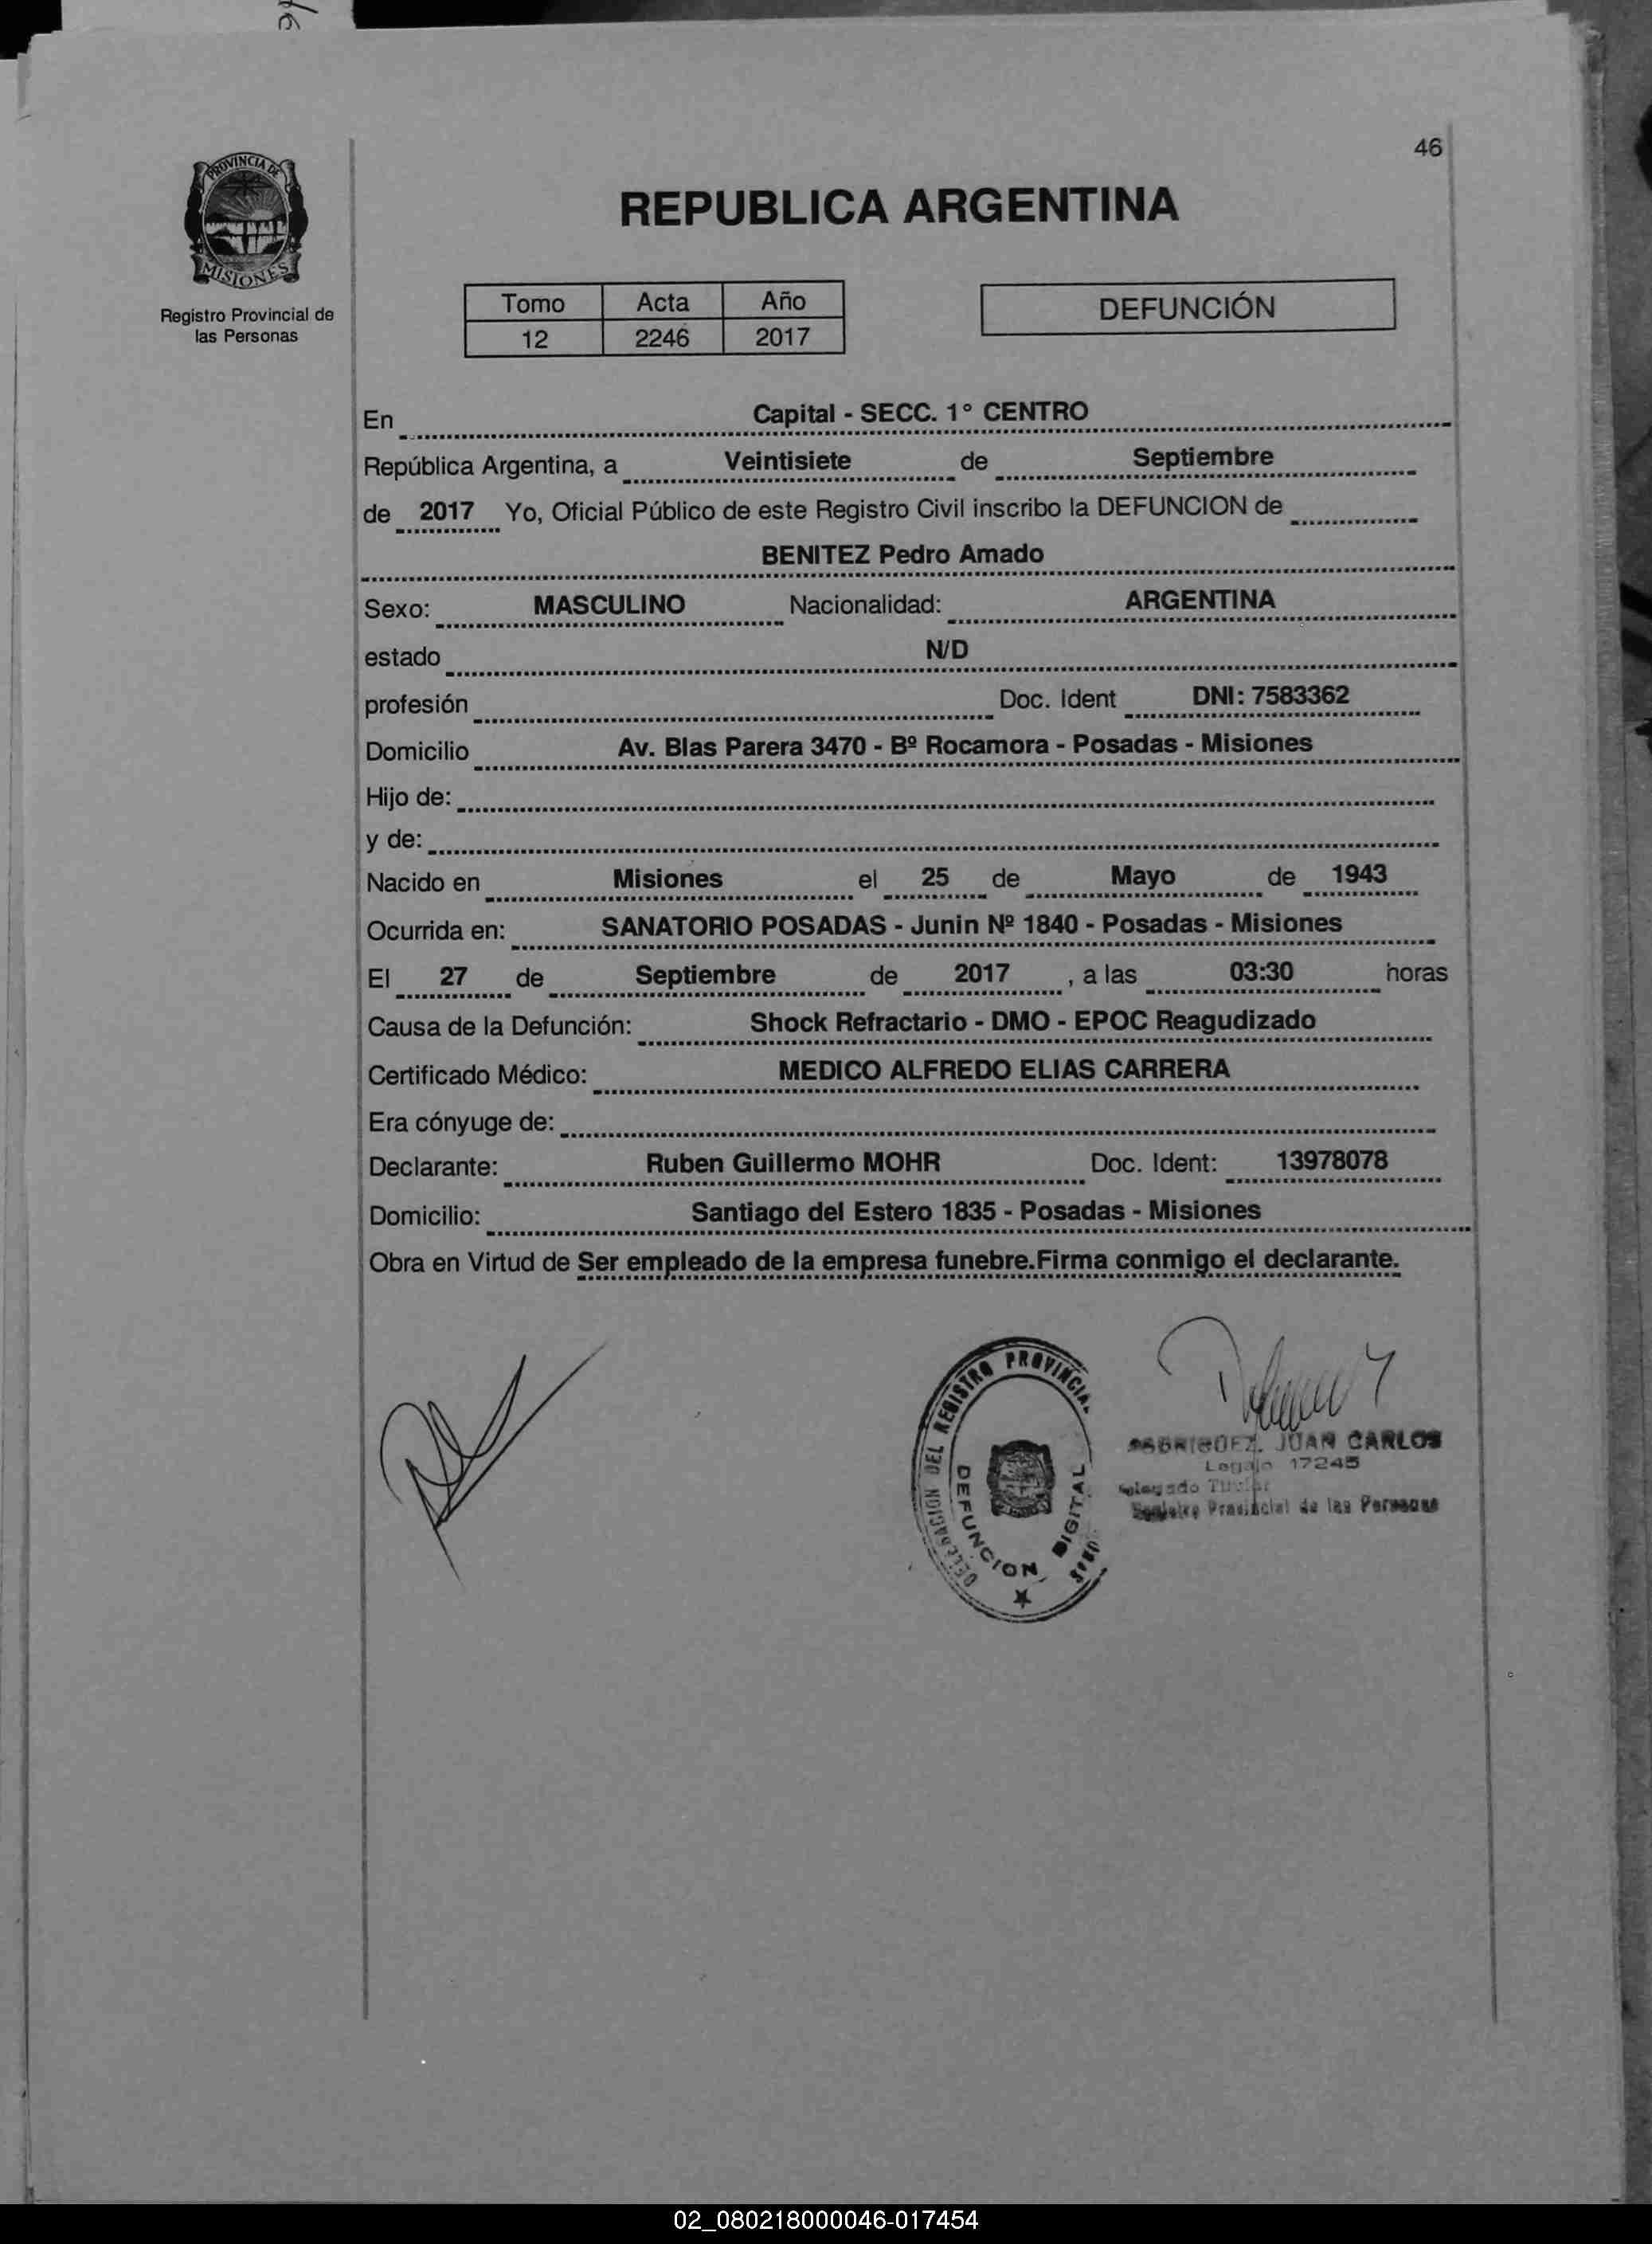 46
PROVINCIA DE
MISIONES
Registro Provincial de
las Personas
REPUBLICA ARGENTINA
Tomo Acta Año
12 2246 2017
DEFUNCIÓN
En Capital - SECC. 1° CENTRO
República Argentina, a Veintisiete de Septiembre
de 2017 Yo, Oficial Público de este Registro Civil inscribo la DEFUNCION de
BENITEZ Pedro Amado
Sexo: MASCULINO Nacionalidad: ARGENTINA
estado N/D
profesión Doc. Ident DNI: 7583362
Domicilio Av. Blas Parera 3470 - Bº Rocamora - Posadas - Misiones
Hijo de:
y de:
Nacido en Misiones el 25 de Mayo de 1943
Ocurrida en: SANATORIO POSADAS - Junin Nº 1840 - Posadas - Misiones
El 27 de Septiembre de 2017 , a las 03:30 horas
Causa de la Defunción: Shock Refractario - DMO - EPOC Reagudizado
Certificado Médico: MEDICO ALFREDO ELIAS CARRERA
Era cónyuge de:
Declarante: Ruben Guillermo MOHR Doc. Ident: 13978078
Domicilio: Santiago del Estero 1835 - Posadas - Misiones
Obra en Virtud de Ser empleado de la empresa funebre.Firma conmigo el declarante.
DELEGACION DEL REGISTRO PROVINCIAL
DEFUNCION DIGITAL
JUAN CARLOS
Legajo 17245
Titular
Provincial de las Personas
02_080218000046-017454